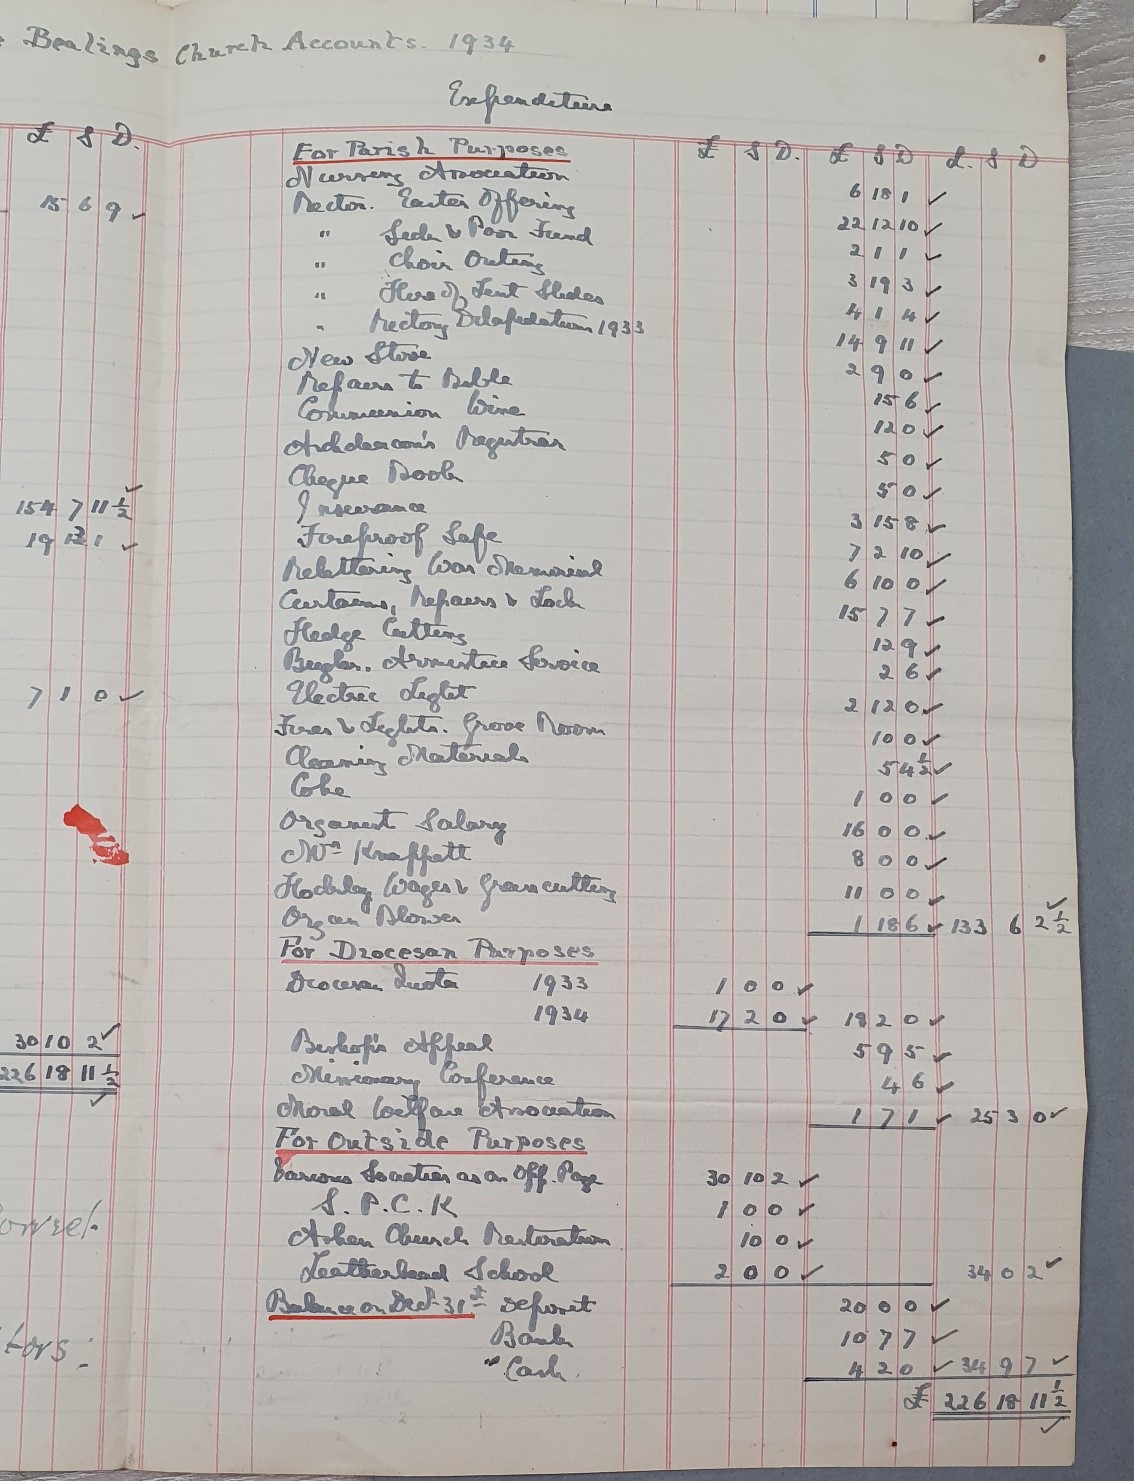 Bealings Church Accounts. 1934
Expenditure
£ S D.
£ S D. £ S D £. S D
For Parish Purposes
Nursing Association 6 18 1
15 6 9
Rector. Easter Offering 22 12 10
" Sick & Poor Fund 2 1 1
" Choir Outing 3 19 3
" Hire of Lent Slides 4 1 4
" Rectory Dilapidations 1933 14 9 11
New Stove 2 9 0
Repairs to Bible 15 6
Communion Wine 12 0
Archdeacon's Registrar 5 0
Cheque Book 5 0
154 7 11½
Insurance 3 15 8
19 1
Fireproof Safe 7 2 10
Relettering War Memorial 6 10 0
Curtains, Repairs & Lock 15 7 7
Hedge Cutting 12 9
Bugler. Armistice Service 2 6
7 1 0
Electric Light 2 12 0
Fires & Lights. Grove Room 10 0
Cleaning Materials 5 4½
Coke 1 0 0
Organist Salary 16 0 0
Mrs Knappett 8 0 0
Wages & Grass cutting 11 0 0
Organ Blower 1 18 6 133 6 2½
For Diocesan Purposes
Diocesan Quota 1933 1 0 0
1934 17 2 0 18 2 0
30 10 2
Bishop's Appeal 5 9 5
226 18 11½
Missionary Conference 4 6
Moral Welfare Association 1 7 1 25 3 0
For Outside Purposes
Various Societies as on Opp. Page 30 10 2
S. P. C. K 1 0 0
Church Restoration 10 0
Leatherhead School 2 0 0 34 0 2
Balance on Dec. 31st Deposit 20 0 0
Bank 10 7 7
tors:
" Cash 4 2 0 34 9 7
£ 226 18 11½